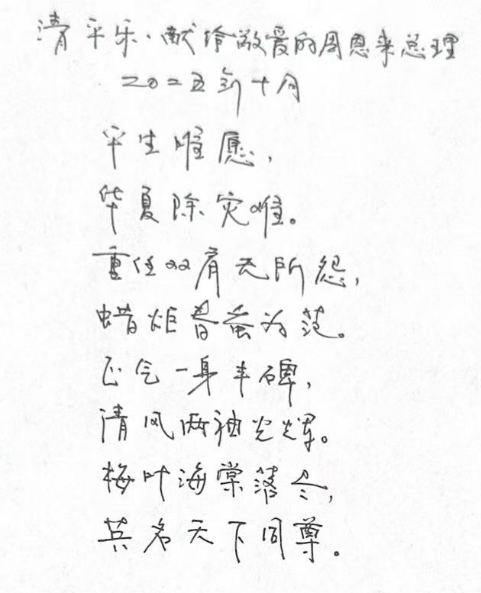 清平乐·献给敬爱的周恩来总理
二〇二五年十月
平生唯愿，
华夏除灾难。
重任双肩无所怨，
蜡炬春蚕为范。
正气一身丰碑，
清风两袖光辉。
梅叶海棠落冬，
英名天下同尊。